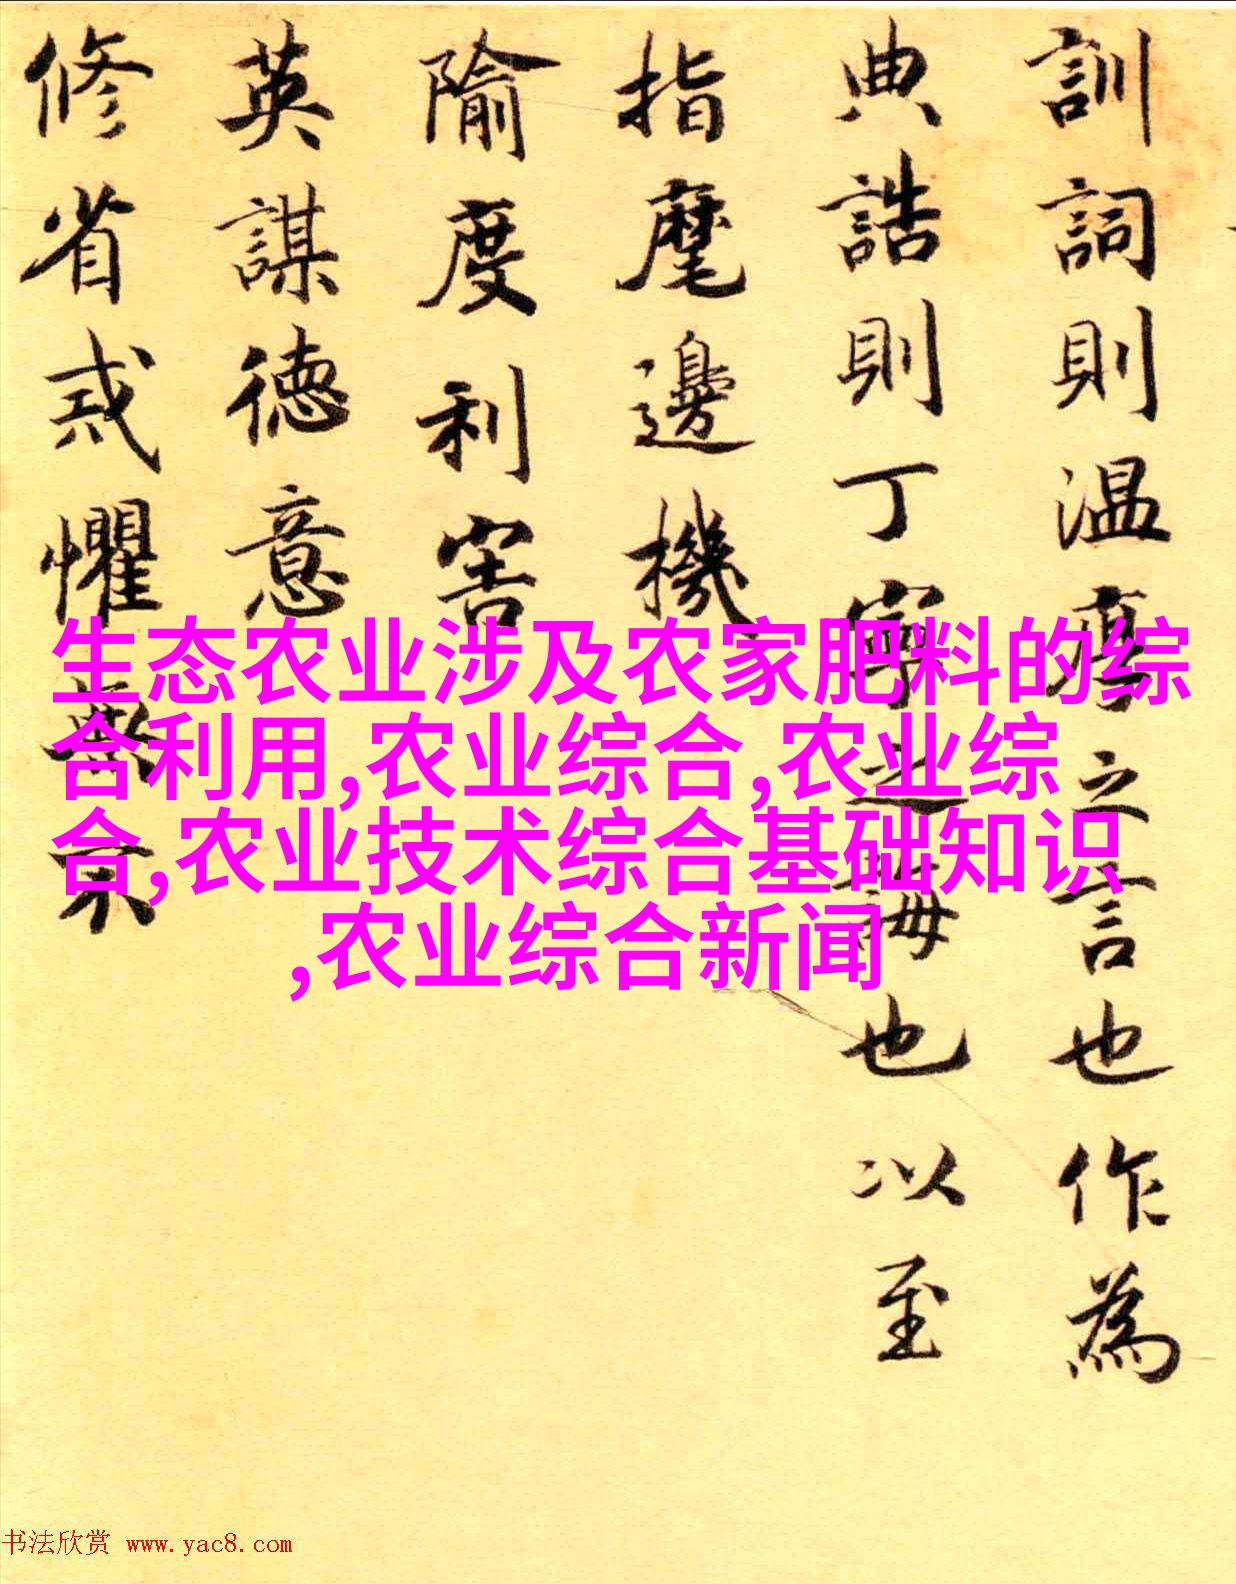 訓詞則温厚之言也作為
典誥則丁寧之誨也以至
指麾邊機
隃度利害
英謀徳意
修省戒懼不
生态农业涉及农家肥料的综
合利用,农业综合,农业综
合,农业技术综合基础知识
,农业综合新闻
书法欣赏 www.yac8.com